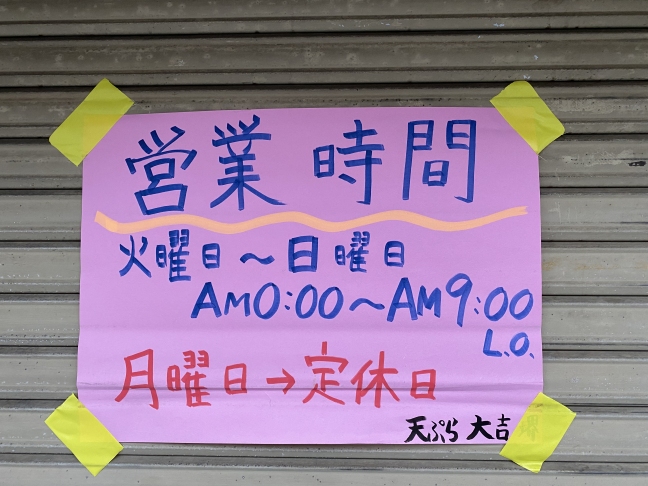 営業時間
火曜日～日曜日
AM0:00～AM9:00
L.O.
月曜日→定休日
天ぷら 大吉